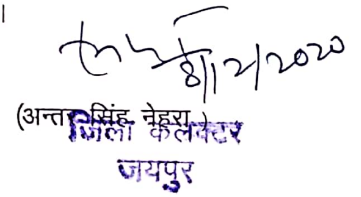 8/12/2020
(अन्तर सिंह नेहरा
जिला कलक्टर
जयपुर